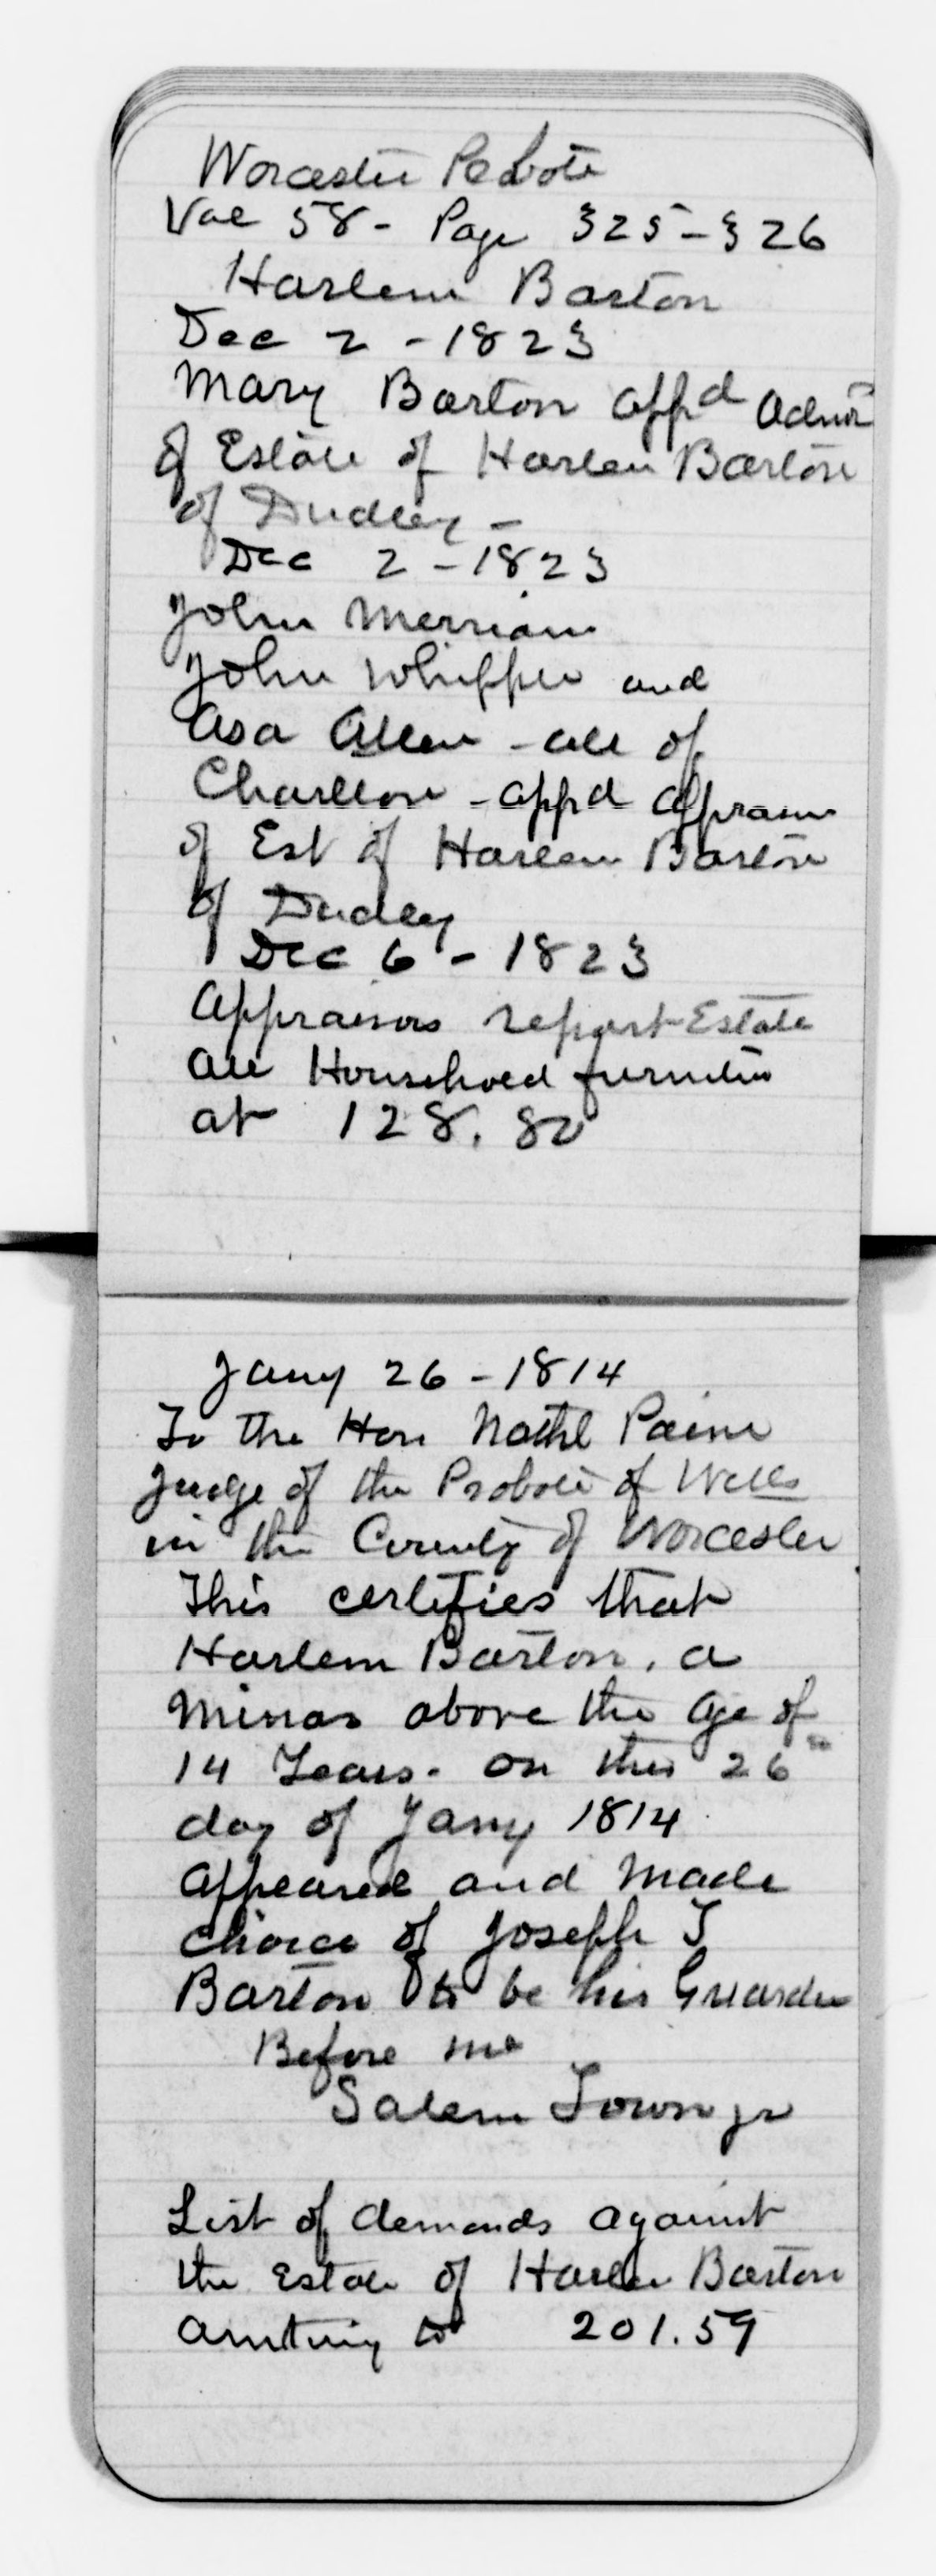 Worcester Probate
Vol 58 - Page 325-326
Harlem Barton
Dec 2 - 1823
Mary Barton appd Admr
of Estate of Harlem Barton
of Dudley -
Dec 2 - 1823
John Merriam
John Whipple and
Asa Allen - all of
Charlton - appd Appraisers
of Est of Harlem Barton
of Dudley
Dec 6 - 1823
Appraisors report Estate
all Household furniture
at 128.80
Jany 26 - 1814
To the Hon Nathl Paine
Judge of the Probate of Wills
in the County of Worcester
This certifies that
Harlem Barton, a
Minor above the age of
14 Years. on this 26th
day of Jany 1814
appeared and made
choice of Joseph T
Barton to be his Guardn
Before me
Salem Town jr
List of demands against
the Estate of Harlem Barton
amting to 201.59